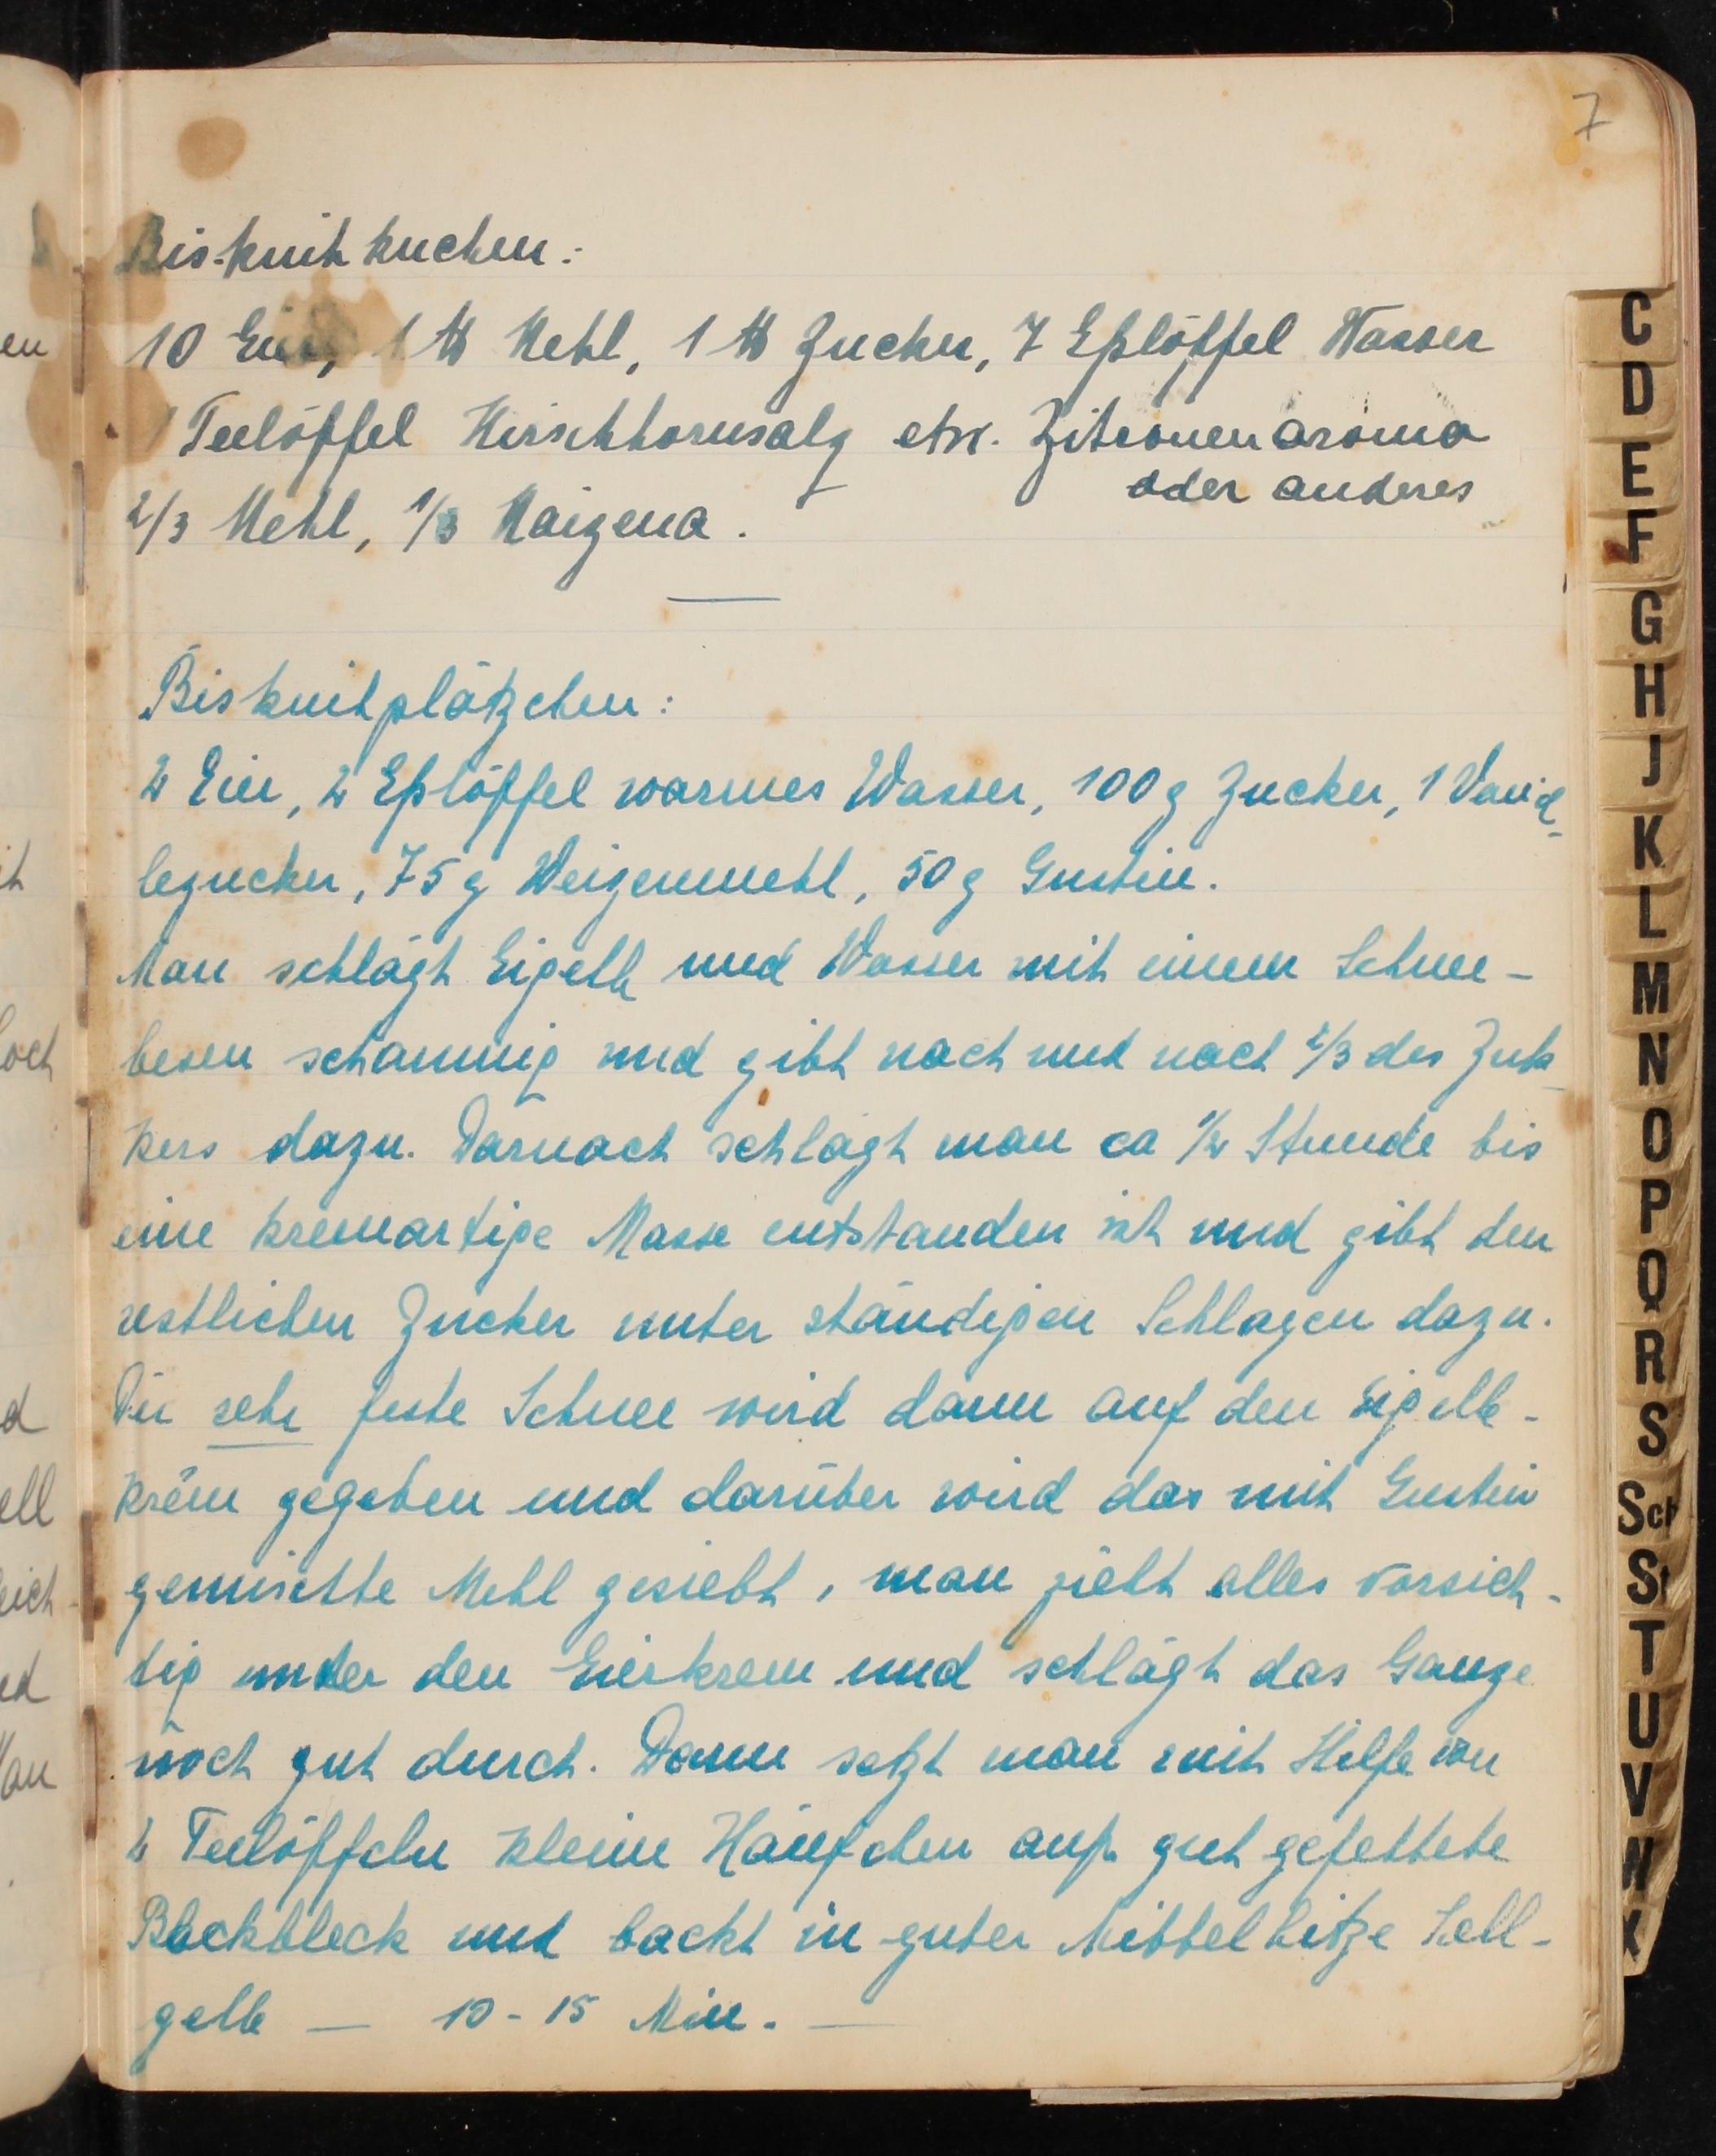 7
Biskuitkuchen:
10 Eier, 1 ℔ Mehl, 1 ℔ Zucker, 7 Eßlöffel Wasser
1 Teelöffel Hirschhornsalz etw. Zitronenaroma
oder anderes
2/3 Mehl, 1/3 Maizena.
Biskuitplätzchen:
2 Eier, 2 Eßlöffel warmes Wasser, 100 g Zucker, 1 Vanil-
lezucker, 75 g Weizenmehl, 50 g Gustin.
Man schlägt Eigelb und Wasser mit einem Schnee-
besen schaumig und gibt nach und nach 2/3 des Zuk-
kers dazu. Darnach schlägt man ca 1/2 Stunde bis
eine kremartige Masse entstanden ist und gibt den
restlichen Zucker unter ständigen Schlagen dazu.
Der sehr feste Schnee wird dann auf den Eigelb-
krem gegeben und darüber wird das mit Gustin
gemischte Mehl gesiebt, man zieht alles vorsich-
tig unter den Eierkrem und schlägt das Ganze
noch gut durch. Dann setzt man mit Hilfe von
2 Teelöffeln kleine Häufchen auf gut gefettete
Backbleck und backt in guter Mittelhitze hell-
gelb — 10 - 15 Min. —
C
D
E
F
G
H
J
K
L
M
N
O
P
Q
R
S
Sch
St
T
U
V
W
X